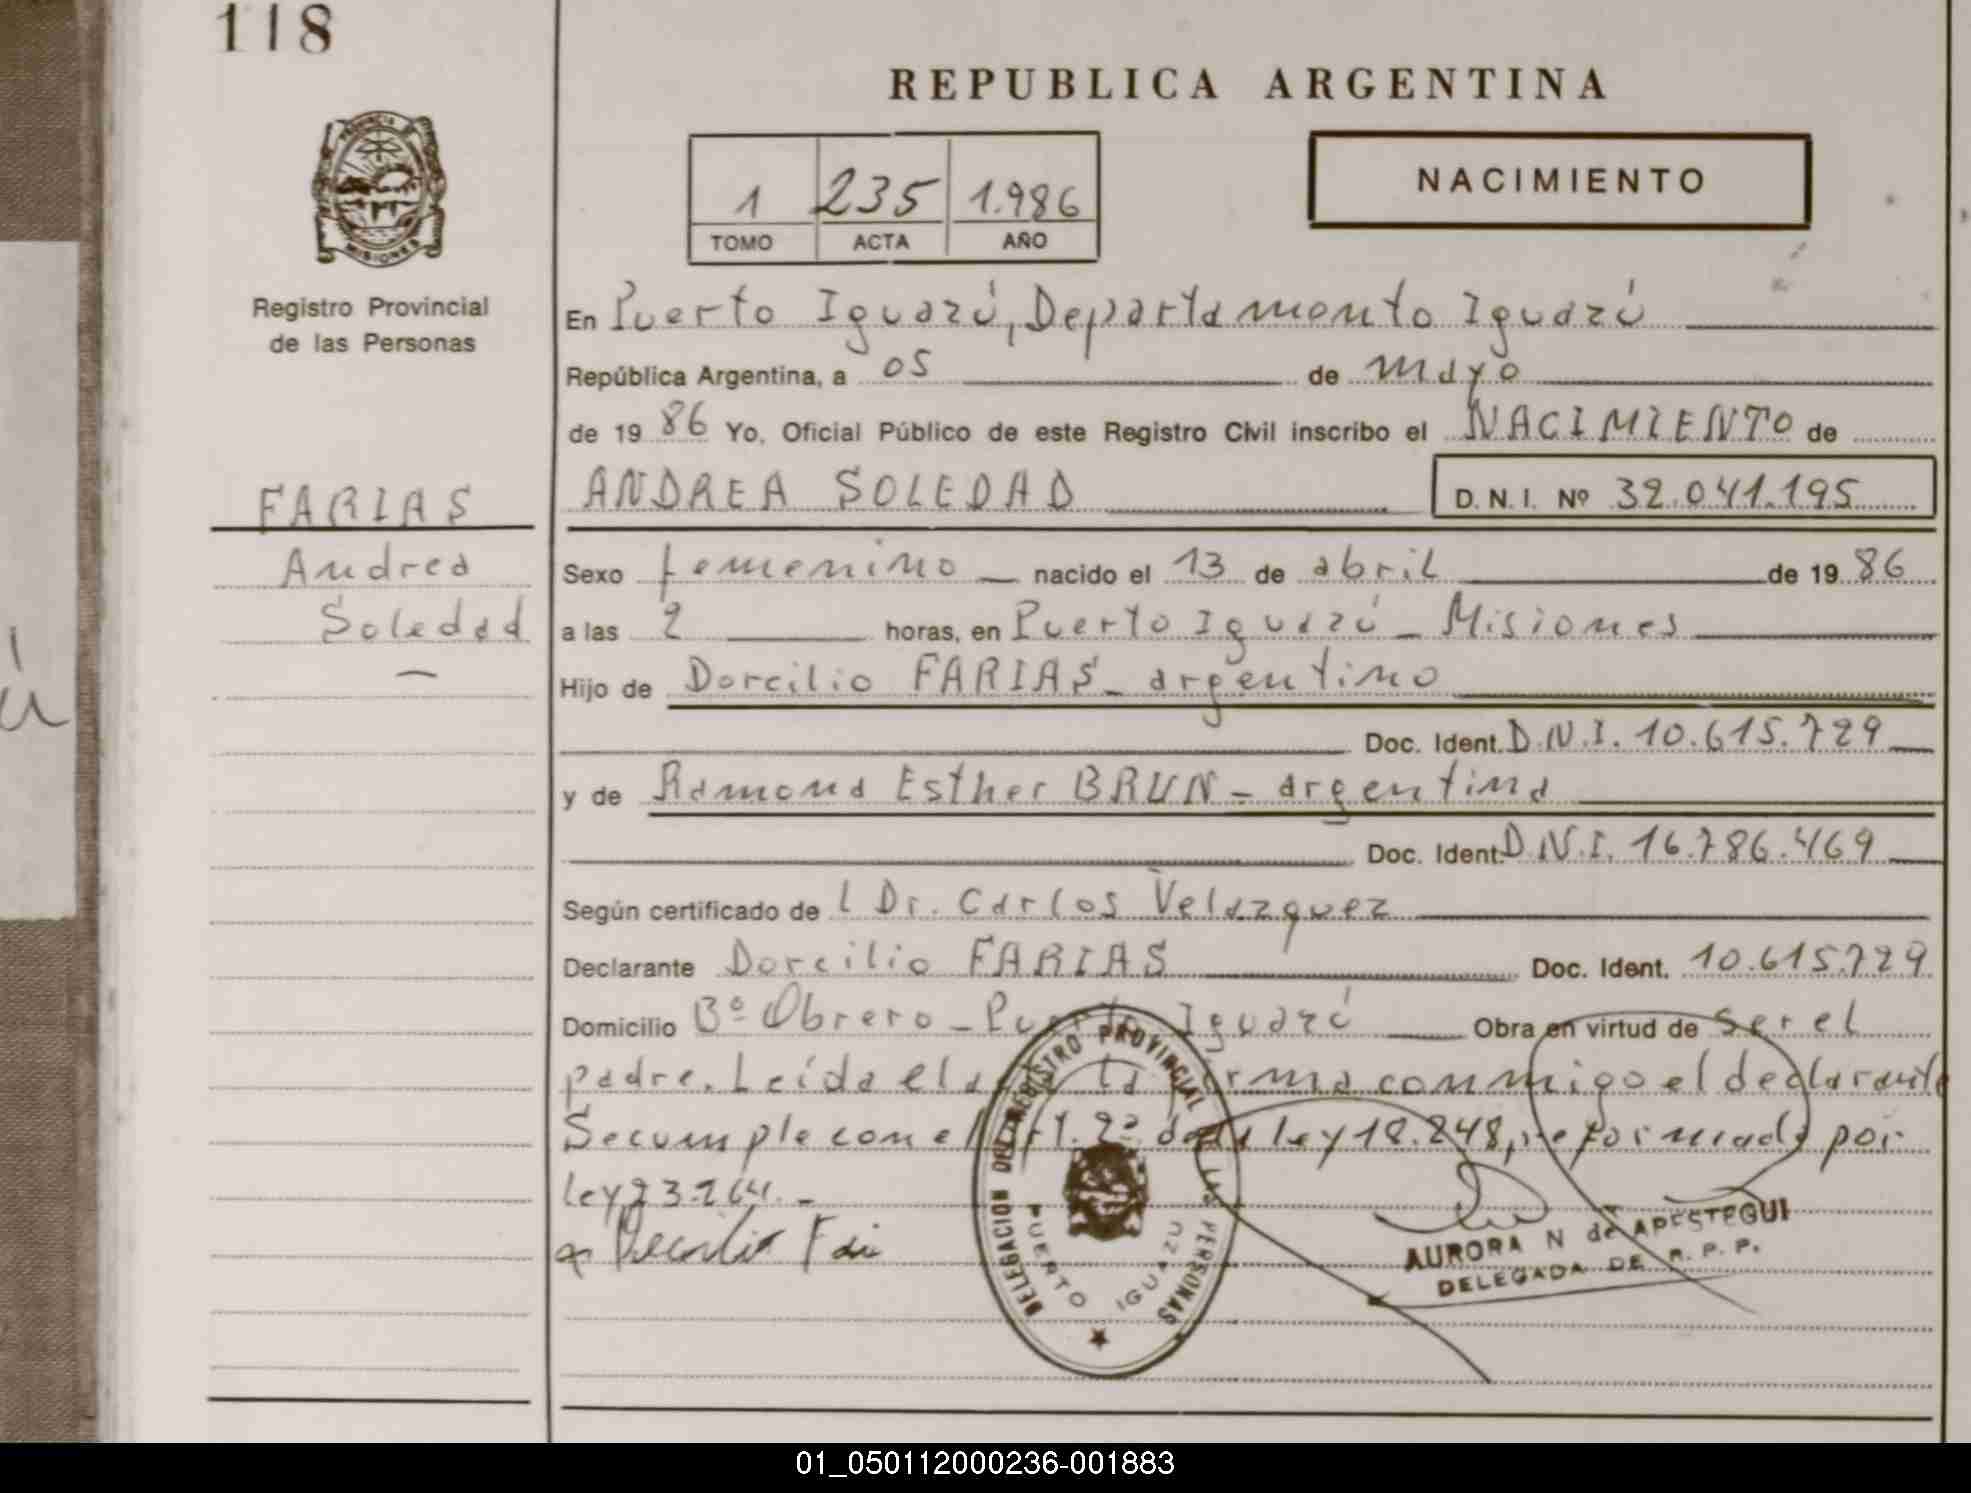 118
REPUBLICA ARGENTINA
PROVINCIA DE
MISIONES
Registro Provincial
de las Personas
1 235 1.986
TOMO ACTA AÑO
NACIMIENTO
En Puerto Iguazú, Departamento Iguazú
República Argentina, a 05 de mayo
de 19 86 Yo, Oficial Público de este Registro Civil inscribo el NACIMIENTO de
FARIAS
Andrea
Soledad
ANDREA SOLEDAD D. N. I. Nº 32.041.195
Sexo femenino nacido el 13 de abril de 19 86
a las 2 horas, en Puerto Iguazú - Misiones
Hijo de Dorcilio FARIAS - argentino
Doc. Ident. D.N.I. 10.615.729
y de Ramona Esther BRUN - argentina
Doc. Ident. D.N.I. 16.786.469
Según certificado de l Dr. Carlos Velazquez
Declarante Dorcilio FARIAS Doc. Ident. 10.615.729
Domicilio Bº Obrero - Puerto Iguazú Obra en virtud de ser el
padre. Leída el la firma conmigo el declarante
Se cumple con el Art. 2º de la ley 18.248, reformada por
ley 23.264. -
DELEGACION DEL REGISTRO PROVINCIAL DE LAS PERSONAS
PUERTO IGUAZU
AURORA N de APESTEGUI
DELEGADA DE R. P. P.
01_050112000236-001883